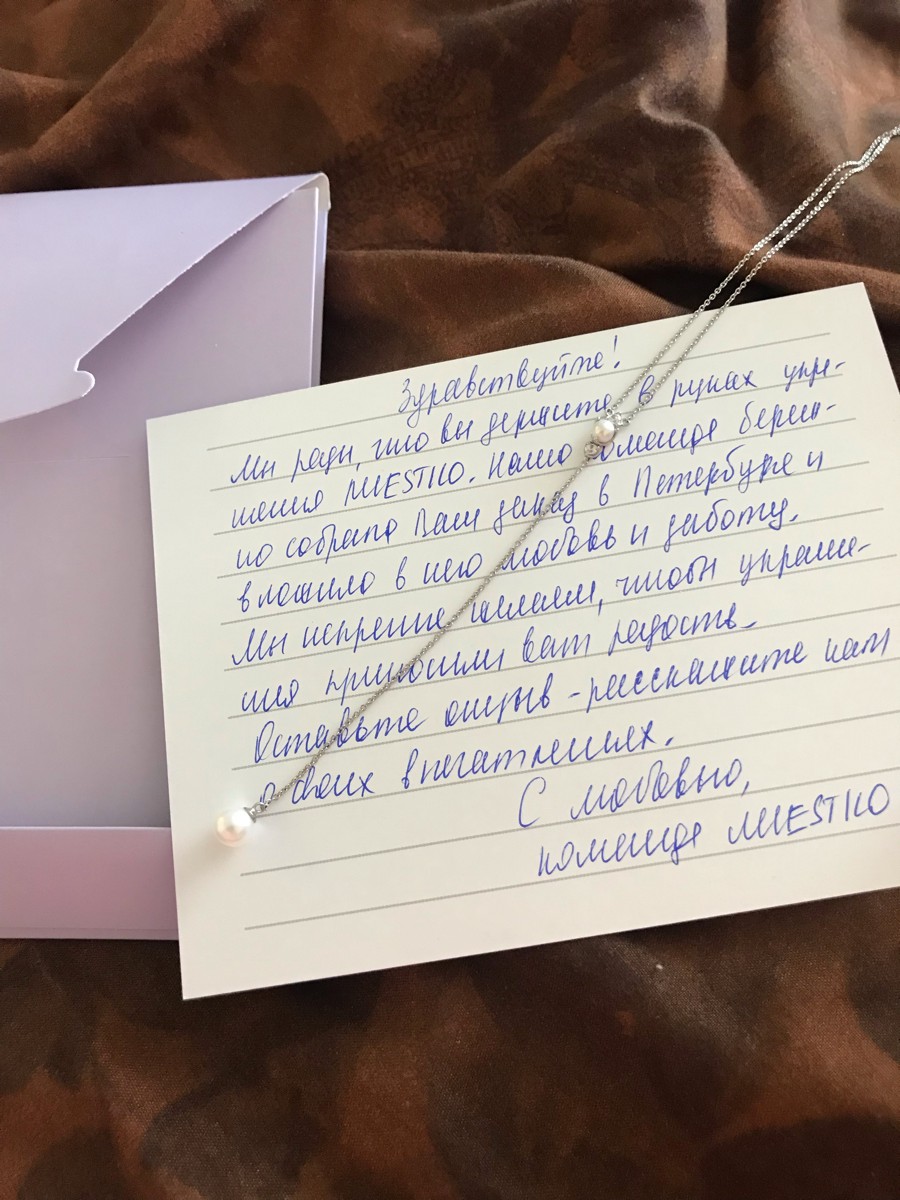 Здравствуйте!
Мы рады, что вы держите в руках укра-
шения MIESTILO. Наша команда береж-
но собрала Ваш заказ в Петербурге и
вложила в него любовь и заботу.
Мы искренне желаем, чтобы украше-
ния приносили вам радость.
Оставьте отзыв - расскажите нам
о своих впечатлениях.
С любовью,
команда MIESTILO